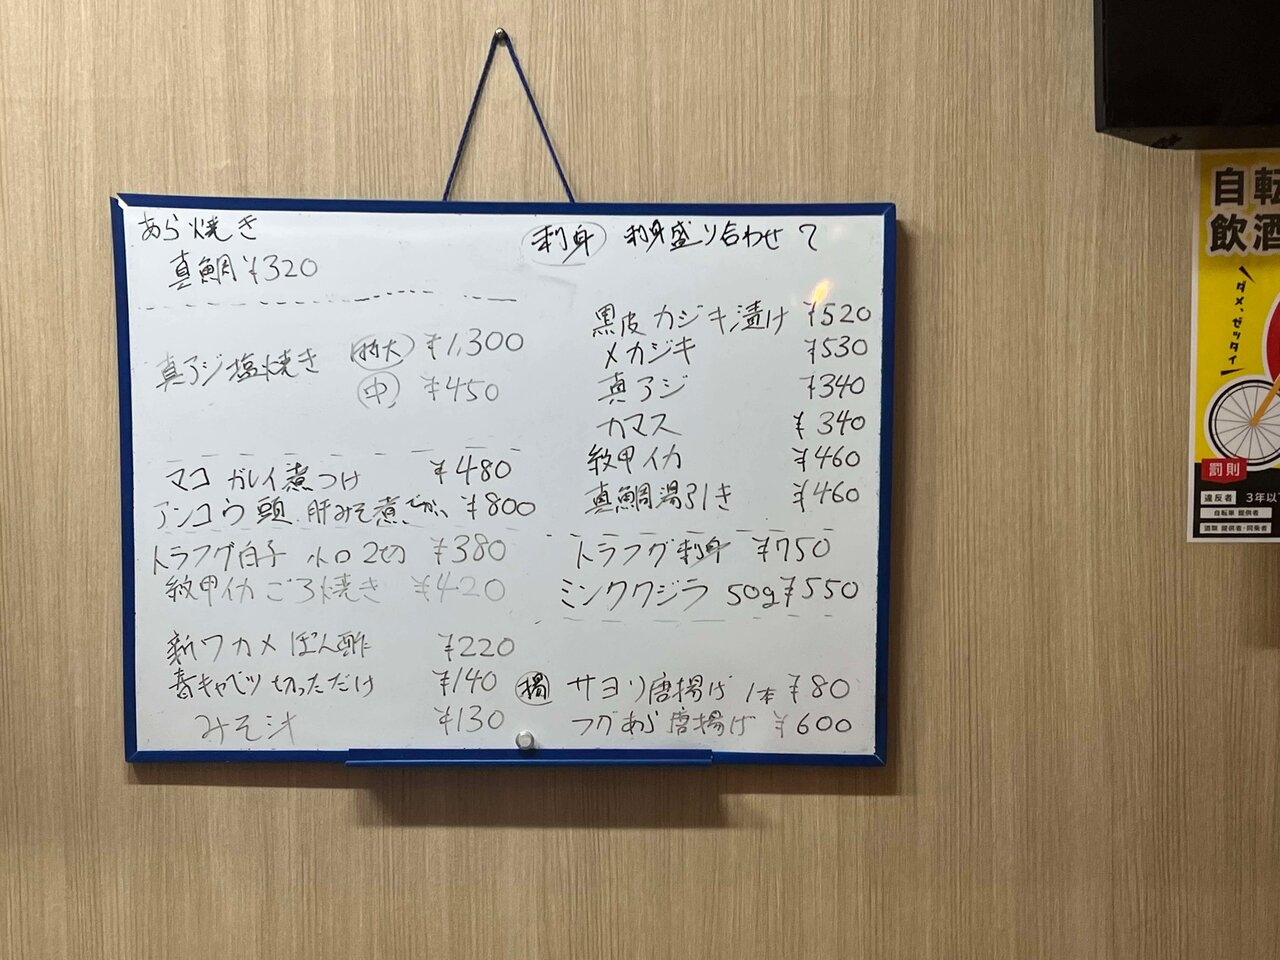 あら焼き
真鯛 ¥320
真アジ塩焼き
特大 ¥1,300
中 ¥450
マコガレイ煮つけ ¥480
アンコウ頭 肝みそ煮 ¥800
トラフグ白子 小口2切 ¥380
紋甲イカごろ焼き ¥420
新ワカメ ぽん酢 ¥220
春キャベツ切っただけ ¥140
みそ汁 ¥130
刺身 刺身盛り合わせ
黒皮カジキ漬け ¥520
メカジキ ¥530
真アジ ¥340
カマス ¥340
紋甲イカ ¥460
真鯛湯引き ¥460
トラフグ刺身 ¥750
ミンククジラ 50g ¥550
揚 サヨリ唐揚げ 1本 ¥80
フグあら唐揚げ ¥600
自転
飲酒
ダメ、ゼッタイ
罰則
違反者 3年以下
自転車 提供者
酒類 提供者・同乗者